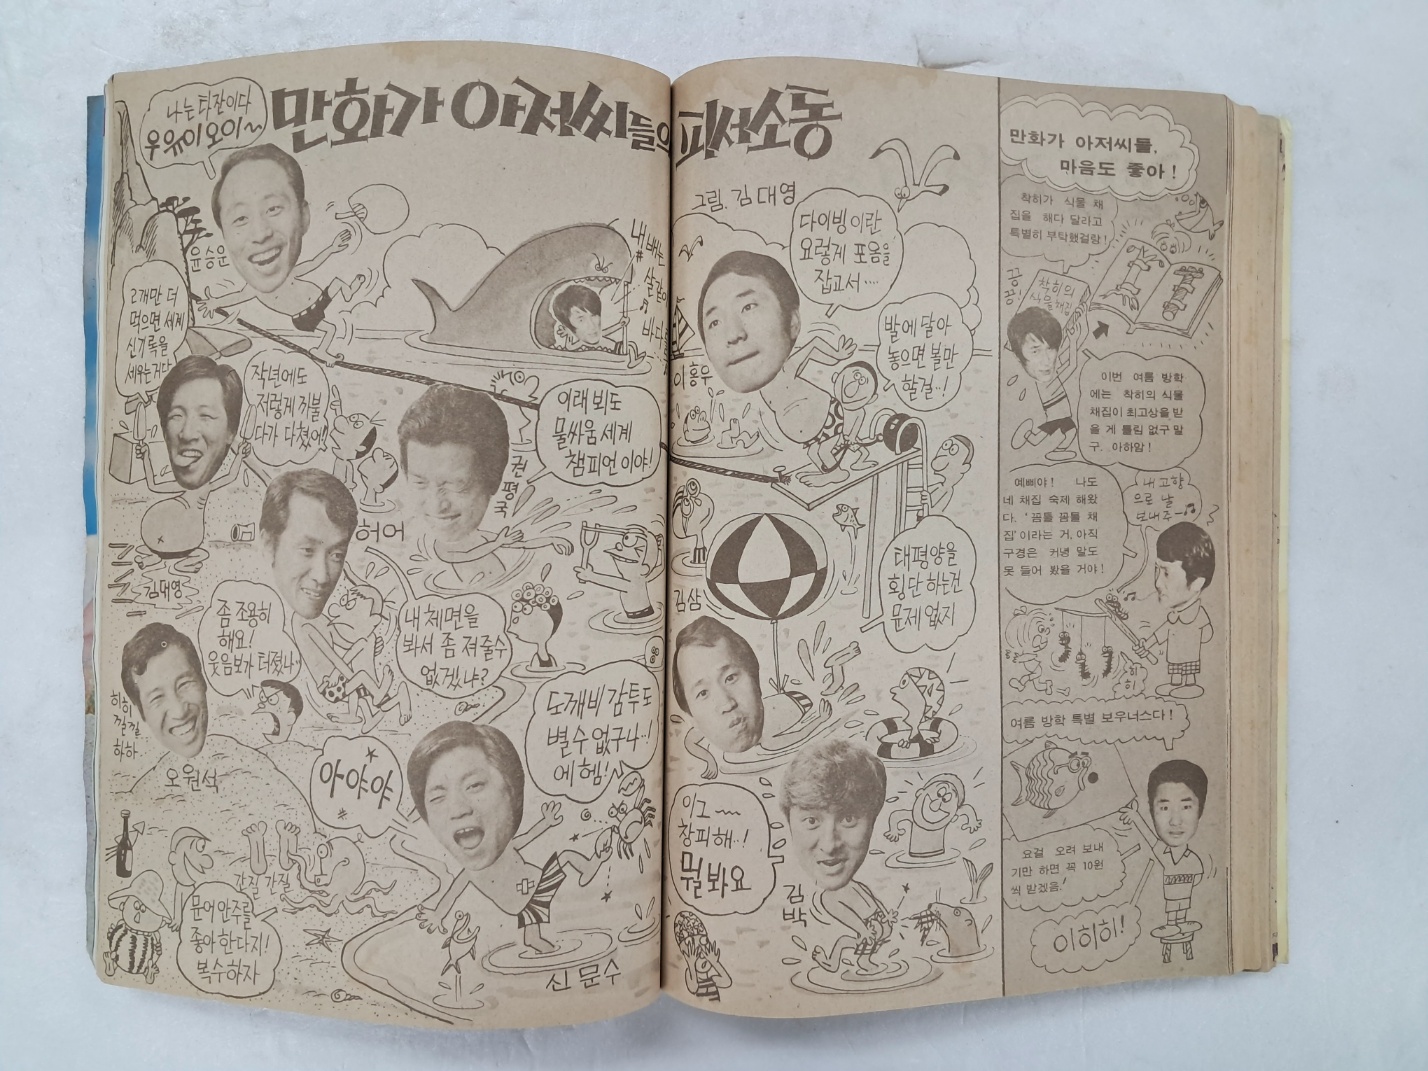 만화가 아저씨들의 피서소동
그림. 김대영
나는 타잔이다
우유이오이~
윤승운
2개만 더
먹으면 세계
신기록을
세우는거다
작년에도
저렇게 까불
다가 다쳤어!
내 배는
살같이
바다를
이래뵈도
물싸움 세계
챔피언 이야!
권평국
허어
김대영
좀 조용히
해요!
웃음보가 터졌나..
내 체면을
봐서 좀 져줄수
없겠냐?
히히
낄낄
하하
오원석
아야야
도깨비감투도
별수 없구나..!
에헴!
간질 간질
문어안주를
좋아한다지!
복수하자
신문수
다이빙이란
요렇게 포옴을
잡고서....
이홍우
발에 달아
놓으면 볼만
할걸..!
태평양을
횡단하는건
문제없지
김삼
이그~~
창피해..!
뭘봐요
김박
만화가 아저씨들,
마음도 좋아!
착히가 식물 채
집을 해다 달라고
특별히 부탁했걸랑!
끙
끙
착히의
식물채집
이번 여름 방학
에는 착히의 식물
채집이 최고상을 받
을 게 틀림 없구 말
구. 아하암!
예삐야! 나도
네 채집 숙제 해왔
다. '꼼틀 꼼틀 채
집'이라는 거, 아직
구경은 커녕 말도
못 들어 봤을 거야!
내고향
으로 날
보내주~
히
히
여름 방학 특별 보우너스다!
요걸 오려 보내
기만 하면 꼭 10원
씩 받겠음!
이히히!